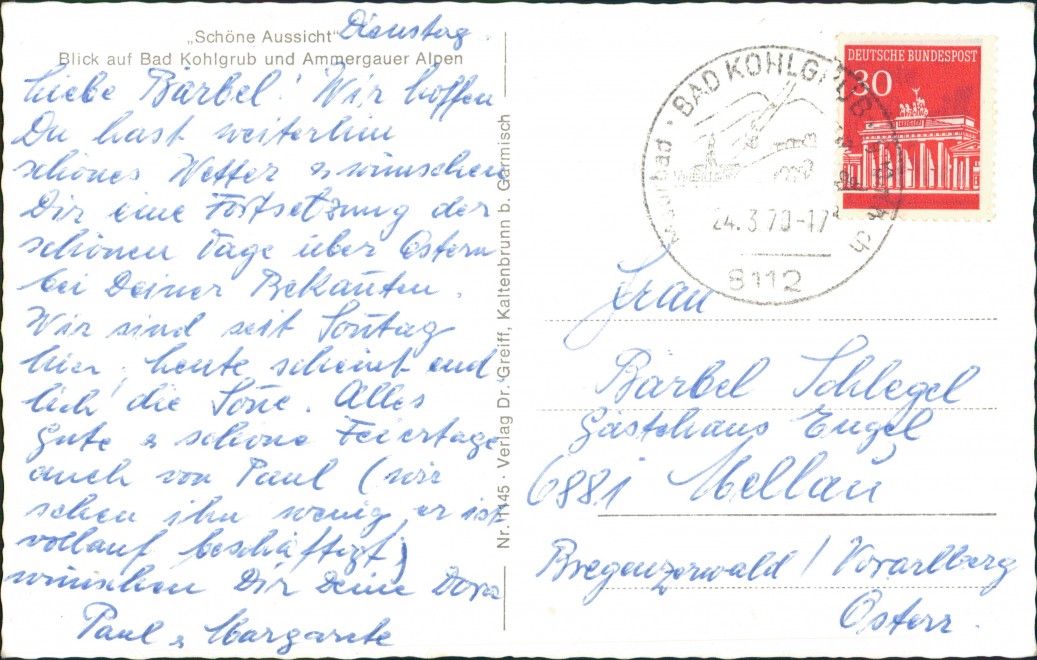 Dienstag.
„Schöne Aussicht“
Blick auf Bad Kohlgrub und Ammergauer Alpen
Liebe Bärbel! Wir hoffen
Du hast weiterhin
schönes Wetter & wünschen
Dir eine Fortsetzung der
schönen Tage über Ostern
bei Deiner Bekañten.
Wir sind seit Soñtag
hier, heute scheint end
lich die Soñe. Alles
Gute & schöne Feiertage
auch von Paul (wir
sehen ihn wenig, er ist
vollauf beschäftigt)
wünschen Dir Deine Dora
Paul & Margarete
Nr. 11145 · Verlag Dr. Greiff, Kaltenbrunn b. Garmisch
DEUTSCHE BUNDESPOST
30
BAD KOHLGRUB
24.3.70-17
8112
Frau
Bärbel Schlegel
Gästehaus Engel
6881 Mellau
Bregenzerwald / Vorarlberg
Österr.